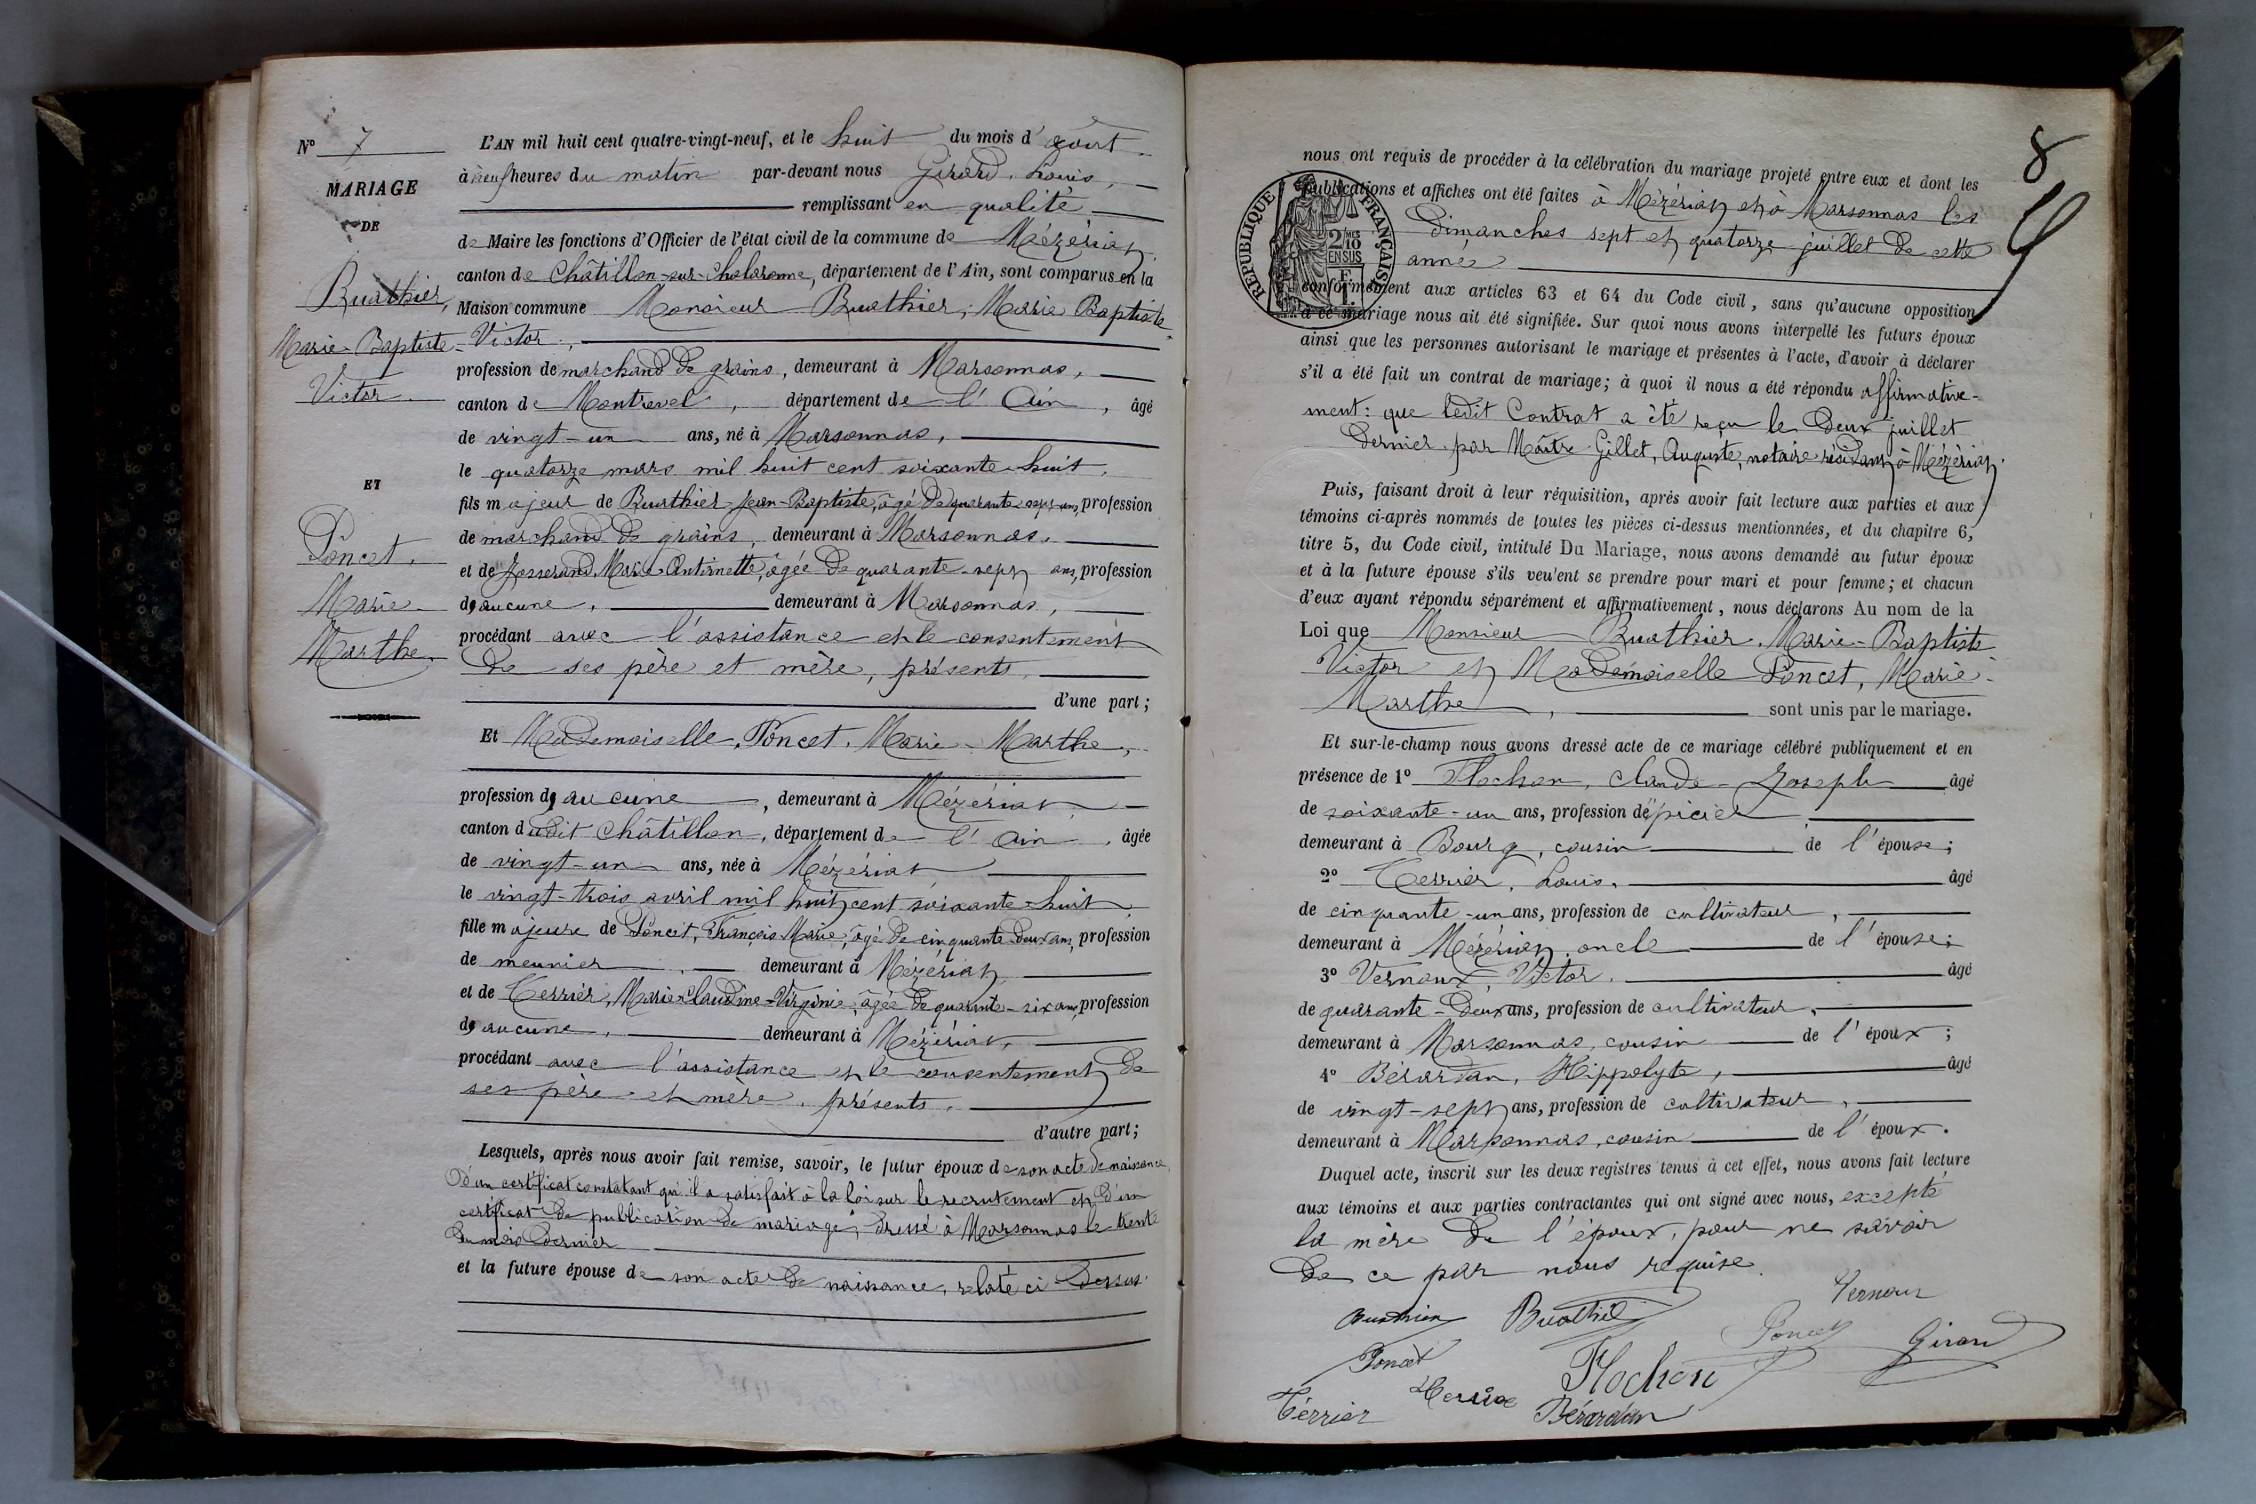 N° 7
MARIAGE
DE
Buathier,
Marie-Baptiste
Victor.
ET
Poncet,
Marie
Marthe.
L'AN mil huit cent quatre-vingt-neuf, et le huit du mois d'août
à neuf heures du matin par-devant nous Girard, Louis,
remplissant en qualité
de Maire les fonctions d'Officier de l'état civil de la commune de Mézériat,
canton de Châtillon-sur-Chalaronne, département de l'Ain, sont comparus en la
Maison commune Monsieur Buathier, Marie Baptiste
Victor,
profession de marchand de grains, demeurant à Marsonnas,
canton de Montrevel, département de l'Ain, âgé
de vingt-un ans, né à Marsonnas,
le quatorze mars mil huit cent soixante-huit,
fils majeur de Buathier Jean-Baptiste, âgé de quarante-sept ans, profession
de marchand de grains, demeurant à Marsonnas,
et de Josserand Marie Antoinette, âgée de quarante-sept ans, profession
d'aucune, demeurant à Marsonnas,
procédant avec l'assistance et le consentement
de ses père et mère, présents,
d'une part;
Et Mademoiselle, Poncet, Marie-Marthe,
profession d'aucune, demeurant à Mézériat
canton dudit Châtillon, département de l'Ain, âgée
de vingt-un ans, née à Mézériat
le vingt-trois avril mil huit cent soixante-huit,
fille majeure de Poncet, François Marie, âgé de cinquante-deux ans, profession
de meunier, demeurant à Mézériat
et de Terrier, Marie-Claudine-Virginie, âgée de quarante-six ans, profession
d'aucune, demeurant à Mézériat,
procédant avec l'assistance et le consentement de
ses père et mère, présents,
d'autre part;
Lesquels, après nous avoir fait remise, savoir, le futur époux de son acte de naissance,
d'un certificat constatant qu'il a satisfait à la loi sur le recrutement et d'un
certificat de publication de mariage, dressé à Marsonnas le trente
du mois dernier
et la future épouse de son acte de naissance, relaté ci-dessus.
8
nous ont requis de procéder à la célébration du mariage projeté entre eux et dont les
publications et affiches ont été faites à Mézériat et à Marsonnas les
dimanches sept et quatorze juillet de cette
année
RÉPUBLIQUE FRANÇAISE
2/10 MES
EN SUS
conformément aux articles 63 et 64 du Code civil, sans qu'aucune opposition
à ce mariage nous ait été signifiée. Sur quoi nous avons interpellé les futurs époux
ainsi que les personnes autorisant le mariage et présentes à l'acte, d'avoir à déclarer
s'il a été fait un contrat de mariage; à quoi il nous a été répondu affirmative-
ment: que ledit Contrat a été reçu le deux juillet
dernier par Maître Gillet, Auguste, notaire résidant à Mézériat.
Puis, faisant droit à leur réquisition, après avoir fait lecture aux parties et aux
témoins ci-après nommés de toutes les pièces ci-dessus mentionnées, et du chapitre 6,
titre 5, du Code civil, intitulé Du Mariage, nous avons demandé au futur époux
et à la future épouse s'ils veulent se prendre pour mari et pour femme; et chacun
d'eux ayant répondu séparément et affirmativement, nous déclarons Au nom de la
Loi que Monsieur Buathier, Marie-Baptiste
Victor et Mademoiselle Poncet, Marie-
Marthe, sont unis par le mariage.
Et sur-le-champ nous avons dressé acte de ce mariage célébré publiquement et en
présence de 1° Flochon, Claude-Joseph âgé
de soixante-un ans, profession d'épicier
demeurant à Bourg, cousin de l'épouse;
2° Terrier, Louis, âgé
de cinquante-un ans, profession de cultivateur,
demeurant à Mézériat, oncle de l'épouse;
3° Vernoux, Victor, âgé
de quarante-deux ans, profession de cultivateur,
demeurant à Marsonnas, cousin de l'époux;
4° Bérardan, Hippolyte, âgé
de vingt-sept ans, profession de cultivateur,
demeurant à Marsonnas, cousin de l'époux.
Duquel acte, inscrit sur les deux registres tenus à cet effet, nous avons fait lecture
aux témoins et aux parties contractantes qui ont signé avec nous, excepté
la mère de l'époux, pour ne savoir
de ce par nous requise.
Vernoux
Buathier
Poncet Girard
Poncet Flochon
Terrier Bérardan